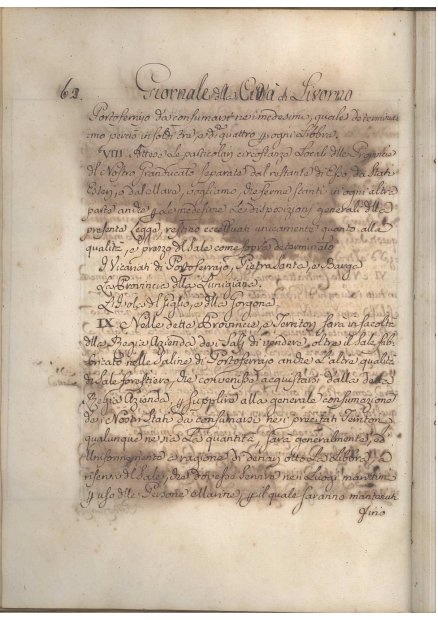 62. Giornale della Città di Livorno
Portoferrajo da consumarsi nei medesimi, quale determiniamo perciò in soldi tre, e quattro p ogni Libbra.
VIII. Attese le particolari circostanze Locali delle Provincie
del Nostro Granducato separate dal restante di Esso da Stati
Esteri, o dal Mare, vogliamo, che ferme stanti in ogni altra
parte anche p le medesime Le disposizioni generali della
presente Legge, restino eccettuati unicamente quanto alla
qualità, e prezzo del Sale come sopra determinato
I Vicariati di Portoferrajo, Pietrasanta, e Barga
La Provincia della Lunigiana.
L'Isola del Giglio, e della Gorgona.
IX. Nelle dette Provincie, e Territorj sarà in facoltà
della Regia Azienda dei Sali di vendere, oltre il Sale fab-
bricato nelle Saline di Portoferrajo anche le altre qualità
di Sale forestiero, che convenisse acquistarsi dalla detta
Regia Azienda, p supplire alla generale consumazione
dei Nostri Stati da consumarsi nei precitati Territorj
qualunque ne sia La quantità, sarà generalmente, ed
Uniformemente a ragione di denari otto La Libbra, a
riserva del Sale, che dovesse servire nei Luoghi marittimi
p uso delle Persone Marine, p il quale saranno mantenuti
fino